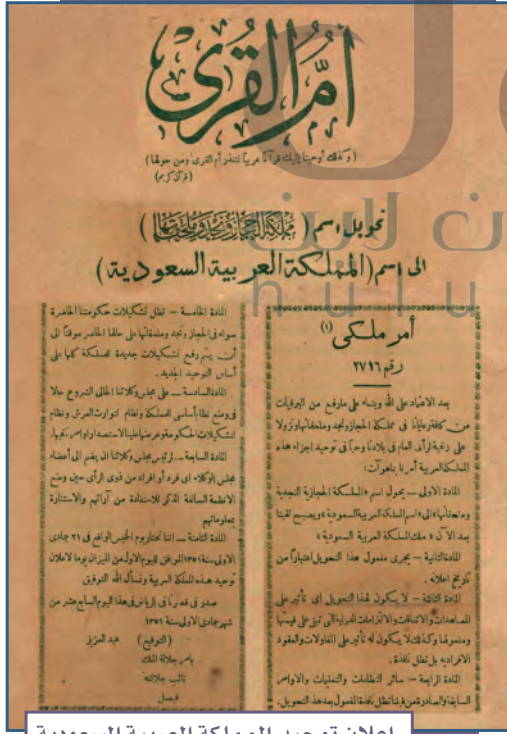 أم القرى
(وكذلك أوحينا إليك قرآنا عربيا لتنذر أم القرى ومن حولها)
(قرآن كريم)
تحويل اسم (مملكة الحجاز ونجد وملحقاتها)
الى اسم (المملكة العربية السعودية)
أمر ملكي (١)
رقم ٢٧١٦
بعد الاعتماد على الله وبناء على مارفع من البرقيات
من كافة رعايانا فى مملكة الحجاز ونجد وملحقاتها ونزولا
على رغبة الرأى العام فى بلادنا وحبا فى توحيد اجزاء هذه
المملكة العربية أمرنا بما هو آت :
المادة الاولى — يحول اسم «المملكة الحجازية النجدية
وملحقاتها» الى «اسم المملكة العربية السعودية» ويصبح لقبنا
بعد الآن «ملك المملكة العربية السعودية»
المادة الثانية — يجرى مفعول هذا التحويل اعتبارا من
تاريخ اعلانه .
المادة الثالثة — لا يكون لهذا التحويل اى تأثير على
المعاهدات والاتفاقات والالتزامات الدولية التى تبقى على قيمتها
ومفعولها وكذلك لا يكون له تأثير على المقاولات والعقود
الافرادية بل تظل نافذة .
المادة الرابعة — سائر النظامات والتعليمات والاوامر
السابقة والصادرة من قبلنا تظل نافذة المفعول بعد هذا التحويل .
المادة الخامسة — تظل تشكيلات حكومتنا الحاضرة
سواء فى الحجاز ونجد وملحقاتها على حالها الحاضر موقتا الى
أن يتم وضع تشكيلات جديدة للمملكة كلها على
أساس التوحيد الجديد .
المادة السادسة — على مجلس وكلائنا الحالى الشروع حالا
فى وضع نظام أساسى للمملكة ونظام لتوارث العرش ونظام
لتشكيلات الحكومة وعرضها علينا لاستصدار اوامرنا فيها .
المادة السابعة — لرئيس مجلس وكلائنا ان يضم الى أعضاء
مجلس الوكلاء اى فرد أو افراد من ذوى الرأى حين وضع
الانظمة السالفة الذكر للاستفادة من آرائهم والاستنارة
بمعلوماتهم
المادة الثامنة — اننا نختار يوم الخميس الواقع فى ٢١ جمادى
الاولى سنة ١٣٥١ الموافق لليوم الاول من الميزان يوما لاعلان
توحيد هذه المملكة العربية ونسأل الله التوفيق
صدر فى قصرنا فى الرياض فى هذا اليوم السابع عشر من
شهر جمادى الاولى سنة ١٣٥١
(التوقيع) عبد العزيز
بامر جلالة الملك
نائب جلالته
فيصل
إعلان توحيد المملكة العربية السعودية